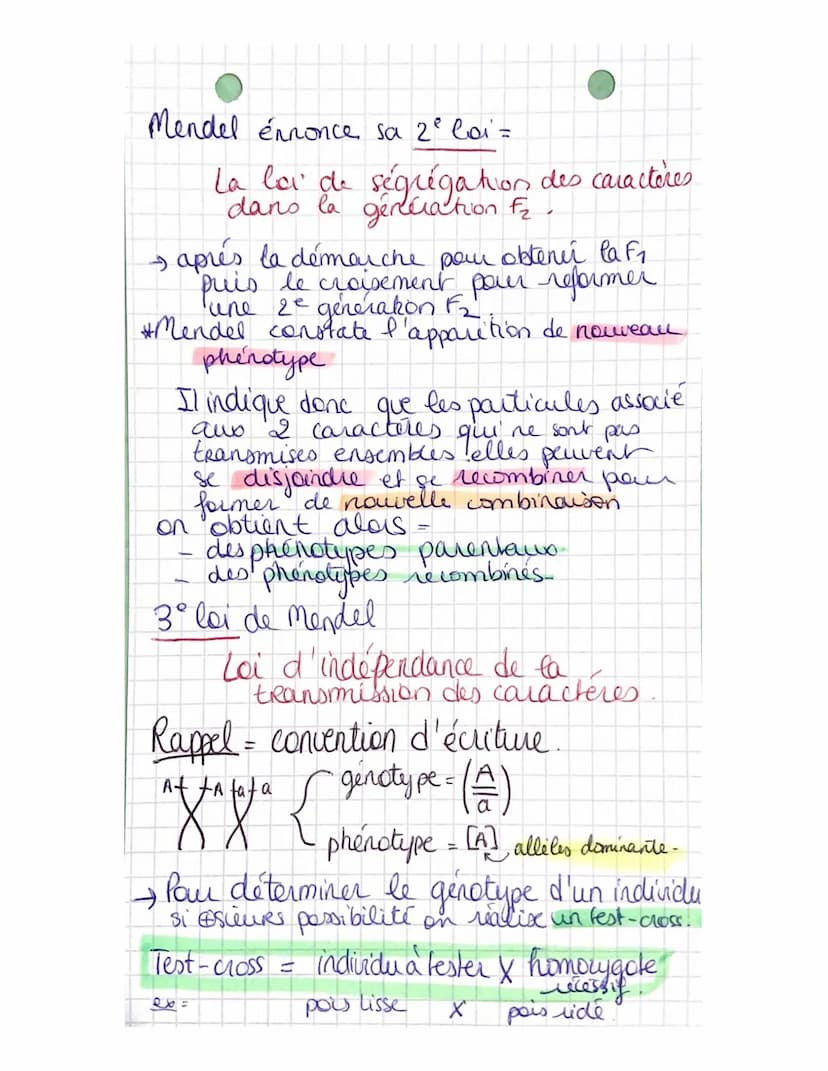 Mendel énnonce sa 2e loi =
La loi de ségrégation des caractères
dans la génération F2.
→ après la démarche pour obtenir la F1
puis le croisement pour reformer
une 2e génération F2.
*Mendel constate l'apparition de nouveau
phénotype
Il indique donc que les particules associé
aux 2 caractères qui ne sont pas
transmises ensembles elles peuvent
se disjoindre et se recombiner pour
former de nouvelle combinaison
on obtient alors =
- des phénotypes parentaux
- des phénotypes recombinés.
3e loi de Mendel
Loi d'indépendance de la
transmission des caractères.
Rappel = convention d'écriture.
A A a a
génotype = (A/a)
phénotype = [A] allèles dominante.
→ Pour déterminer le génotype d'un individu
si ⊕sieurs possibilité on réalise un test-cross.
Test-cross = individu à tester X homozygote
récessif.
ex = pois lisse X pois ridé